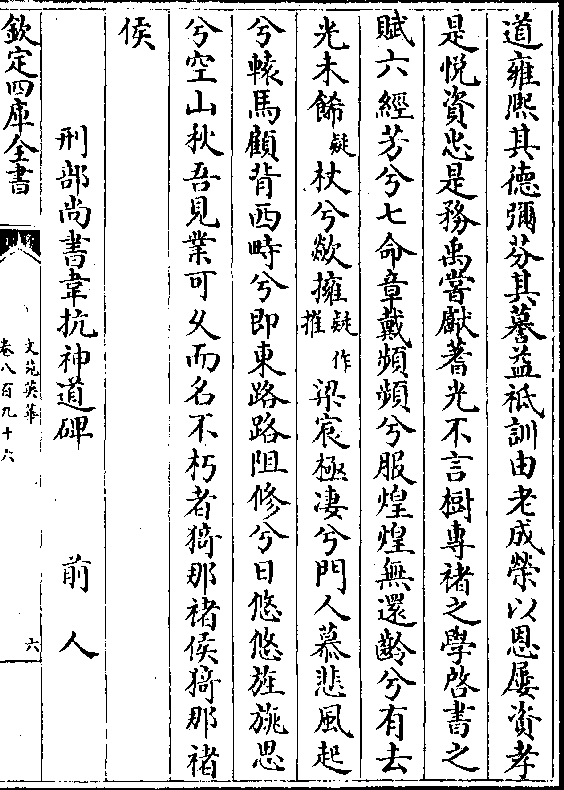 道雍熙其德彌芬其謩益祗訓由老成榮以恩屢資孝
是悦資忠是務禹嘗獻著光不言樹專禇之學啓書之
賦六經芳兮七命章戴頻頻兮服煌煌無還齡兮有去
光木餙疑杖兮歘擁疑作摧梁㝠極凄兮門人慕悲風起
兮轅馬顧背西畤兮即東路路阻修兮日悠悠旌旐思
兮空山秋吾見業可久而名不朽者猗那禇侯猗那禇
侯
刑部尚書韋抗神道碑 前人
欽定四庫全書
文苑英華
卷八百九十六
六